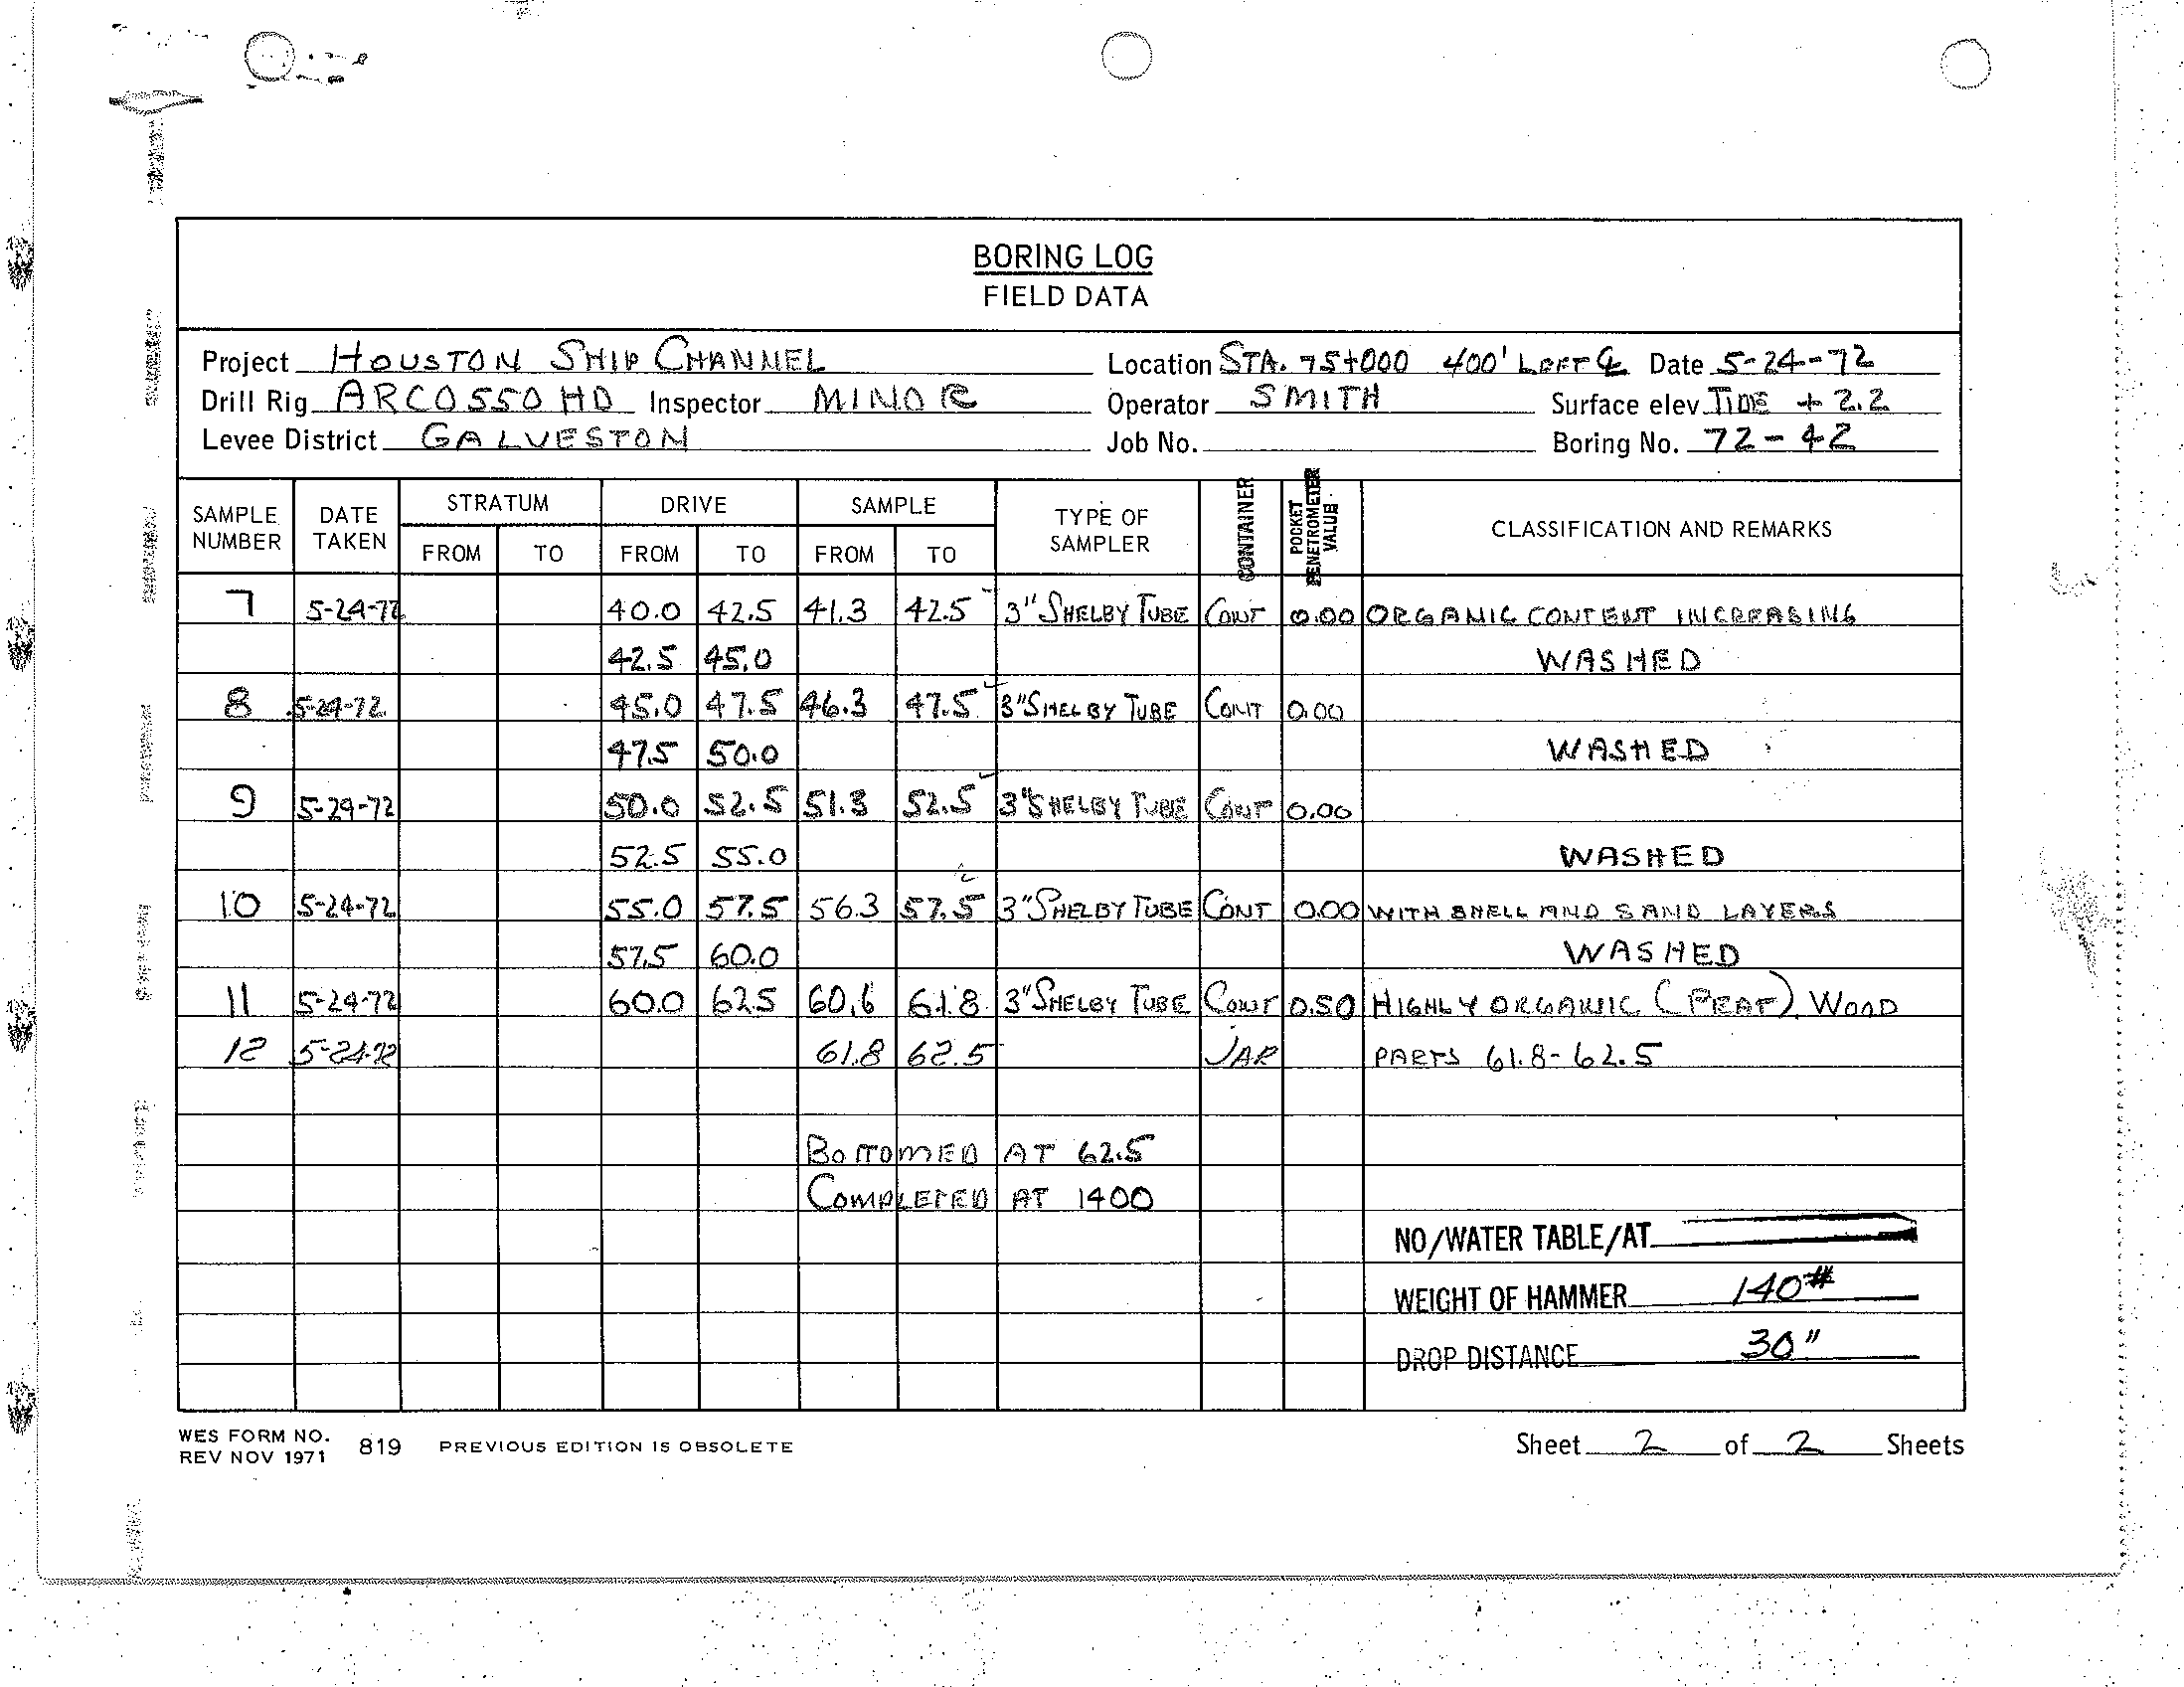 BORING LOG
FIELD DATA
Project HOUSTON SHIP CHANNEL Location STA. 75+000 400' LEFT ℄ Date 5-24-72
Drill Rig ARCO 550 HD Inspector MINOR Operator SMITH Surface elev TIDE + 2.2
Levee District GALVESTON Job No. Boring No. 72-42
SAMPLE NUMBER DATE TAKEN STRATUM DRIVE SAMPLE TYPE OF SAMPLER CONTAINER POCKET PENETROMETER VALUE CLASSIFICATION AND REMARKS
FROM TO FROM TO FROM TO
7 5-24-72 40.0 42.5 41.3 42.5 3" SHELBY TUBE CONT 0.00 ORGANIC CONTENT INCREASING
42.5 45.0 WASHED
8 5-24-72 45.0 47.5 46.3 47.5 3" SHELBY TUBE CONT 0.00
47.5 50.0 WASHED
9 5-24-72 50.0 52.5 51.3 52.5 3" SHELBY TUBE CONT 0.00
52.5 55.0 WASHED
10 5-24-72 55.0 57.5 56.3 57.5 3" SHELBY TUBE CONT 0.00 WITH SHELL AND SAND LAYERS
57.5 60.0 WASHED
11 5-24-72 60.0 62.5 60.6 61.8 3" SHELBY TUBE CONT 0.50 HIGHLY ORGANIC (PEAT) WOOD
12 5-24-72 61.8 62.5 JAR PARTS 61.8-62.5
BOTTOMED AT 62.5
COMPLETED AT 1400
NO/WATER TABLE/AT
WEIGHT OF HAMMER 140#
DROP DISTANCE 30"
WES FORM NO. 819 PREVIOUS EDITION IS OBSOLETE
REV NOV 1971
Sheet 2 of 2 Sheets